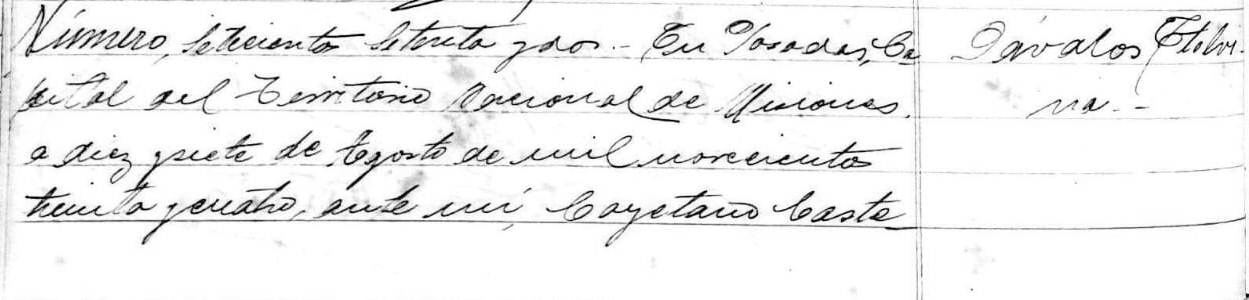 Número, setecientos setenta y dos.- En Posadas, Ca
pital del Territorio Nacional de Misiones.
a diez y siete de Agosto de mil novecientos
treinta y cuatro, ante mí, Cayetano Caste
Dávalos Etelvi-
na.-